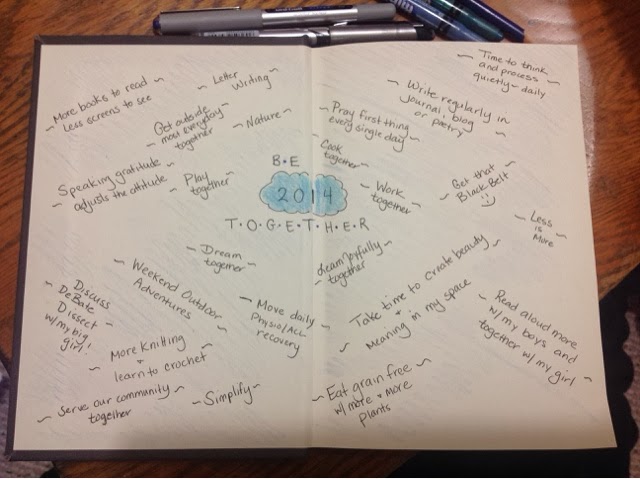 ~ More books to read ~
Less screens to see
~ Letter
Writing ~
Get outside
~ most everyday ~
together
~ Nature ~
Speaking gratitude ~
~ adjusts the attitude
~ Play
together ~
B • E
2014
T • O • G • E • T • H • E • R
~ Time to think
and process
quietly ~ daily
~ Write regularly in
Journal, blog
or poetry
~ Pray first thing
every single day ~
Cook
together ~
~ Work
together ~
~ Get that
Black Belt ~
~ Less
is
More ~
~ Dream
together ~
~ Weekend Outdoor
Adventures ~
~ Discuss
DeBate
Dissect
w/ my big
girl ~
~ More Knitting
+
learn to crochet ~
~ Serve our community ~
together
~ Simplify ~
~ Move daily
Physio/ACL ~
recovery
joyfully
together
~ Take time to create beauty ~
+
~ Meaning in my space
~ Read aloud more
w/ my boys and
together w/ my girl ~
~ Eat grain free ~
w/ more + more
plants